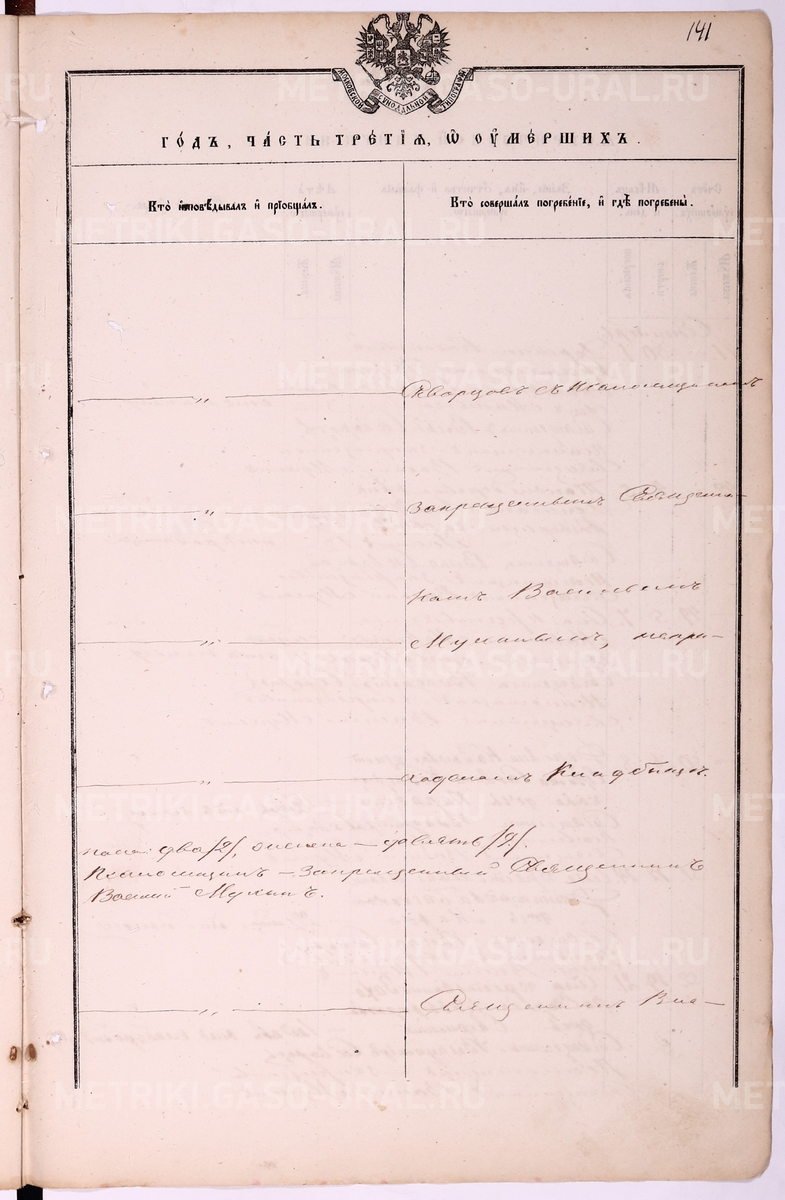 141
МОСКОВСКОЙ СУНОДАЛЬНОЙ ТИПОГРАФІИ
ГО́ДЪ, ЧА́СТЬ ТРЕ́ТІѦ, Ѡ҆ ОУ҆МЕ́РШИХЪ.
Кто̀ и҆сповѣ́дывалъ и҆ прїѡбща́лъ.
Кто̀ соверша́лъ погребе́нїе, и҆ гдѣ̀ погребены̀.
„ Скворцовъ съ псаломщикомъ
„ запрещеннымъ Священни-
комъ Василіемъ
„ Мухинымъ, на при-
„ ходскомъ кладбищѣ.
два /2/, женска – девять /9/.
Псаломщикъ – запрещенный Священникъ
Василій Мухинъ.
„ Священникъ Вла-
METRIKI.GASO-URAL.RU